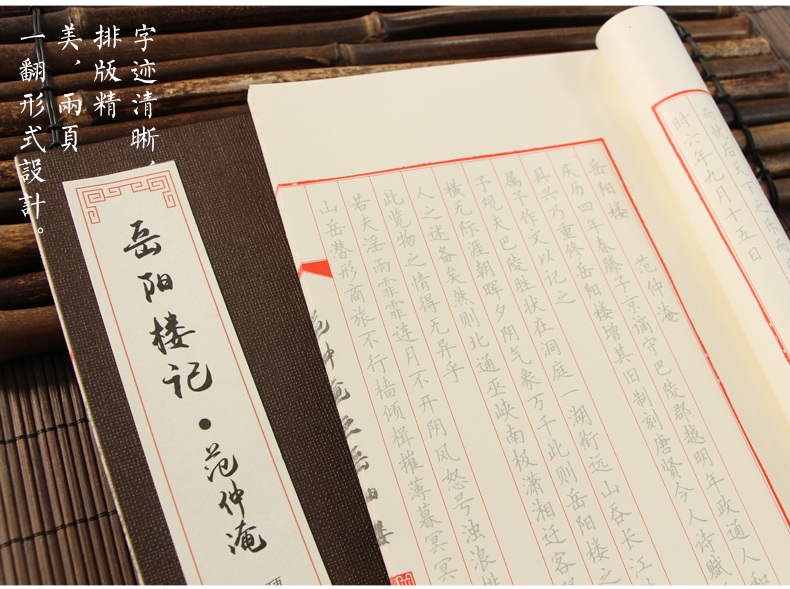 字迹清晰，
排版精
美，兩頁
一翻形式設計。
时六年九月十五日
岳阳楼 范仲淹
庆历四年春滕子京谪守巴陵郡越明年政通人和
具兴乃重修岳阳楼增其旧制刻唐贤今人诗赋
属予作文以记之
予观夫巴陵胜状在洞庭一湖衔远山吞长江
横无际涯朝晖夕阴气象万千此则岳阳楼之
人之述备矣然则北通巫峡南极潇湘迁客
此览物之情得无异乎
若夫淫雨霏霏连月不开阴风怒号浊浪排
山岳潜形商旅不行樯倾楫摧薄暮冥冥
范仲淹之岳阳楼
岳阳楼记·范仲淹